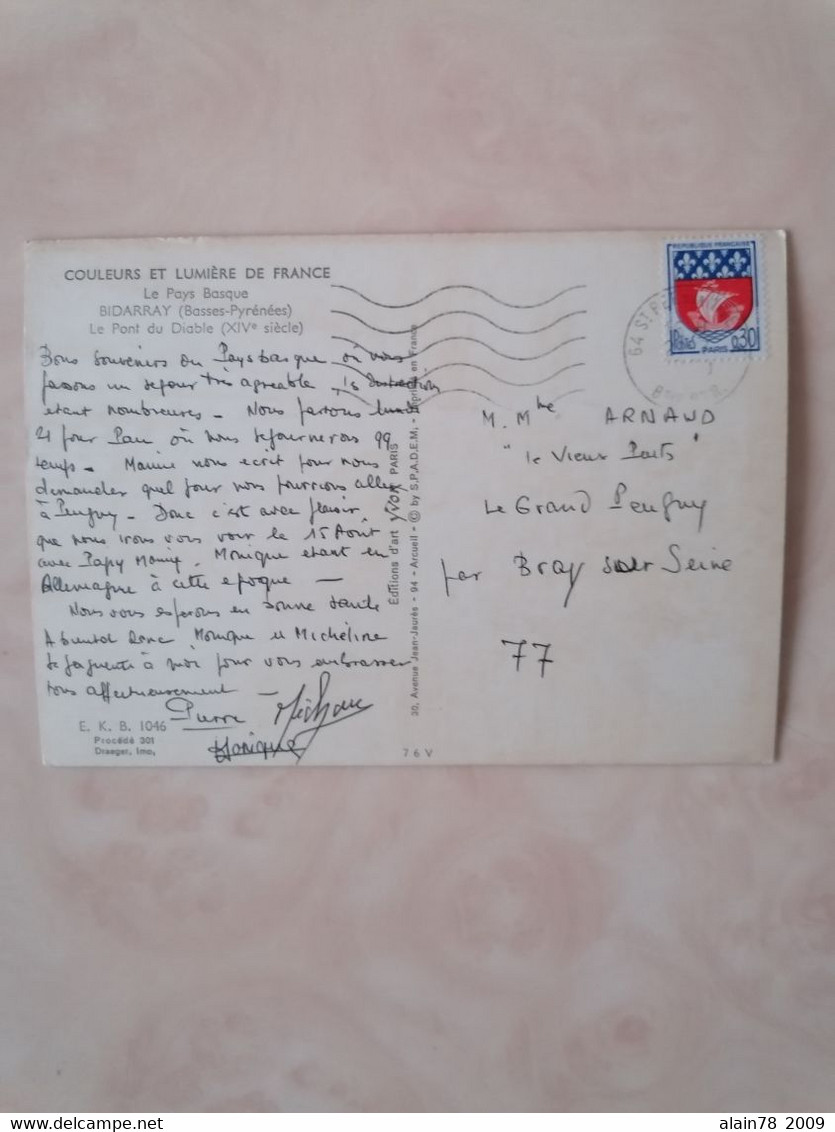 COULEURS ET LUMIÈRE DE FRANCE
Le Pays Basque
BIDARRAY (Basses-Pyrénées)
Le Pont du Diable (XIVe siècle)
Bons souvenirs du Pays basque où nous
passons un sejour très agreable, les distractions
etant nombreuses - Nous partons lundi
21 pour Pau où nous sejournerons qq
temps - Mamie nous ecrit pour nous
demander quel jour nous pourrions aller
à Peugny - Donc c'est avec plaisir
que nous irons vous voir le 15 Août
avec Papy Mamie. Monique etant en
Allemagne à cette epoque -
Nous vous esperons en bonne santé
A bientot donc Monique et Micheline
se joignent à moi pour vous embrasser
tous affectueusement -
Pierre
Monique
E. K. B. 1046
Procédé 301
Draeger, Imp.
Editions d'art YVON PARIS
30, Avenue Jean-Jaurès - 94 - Arcueil - © by S.P.A.D.E.M. - Imprimé en France
76 V
REPUBLIQUE FRANÇAISE
Postes
PARIS
0,30
64 ST
M. Mme ARNAUD
"le Vieux Puits"
Le Grand Peugny
par Bray sur Seine
77
delcampe.net
alain78 2009